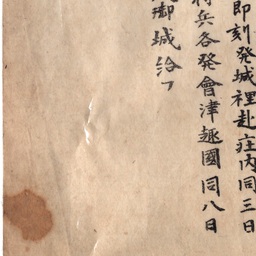 即刻発城裡赴荘内同三日
将兵各発會津趣國同八日
御城給フ